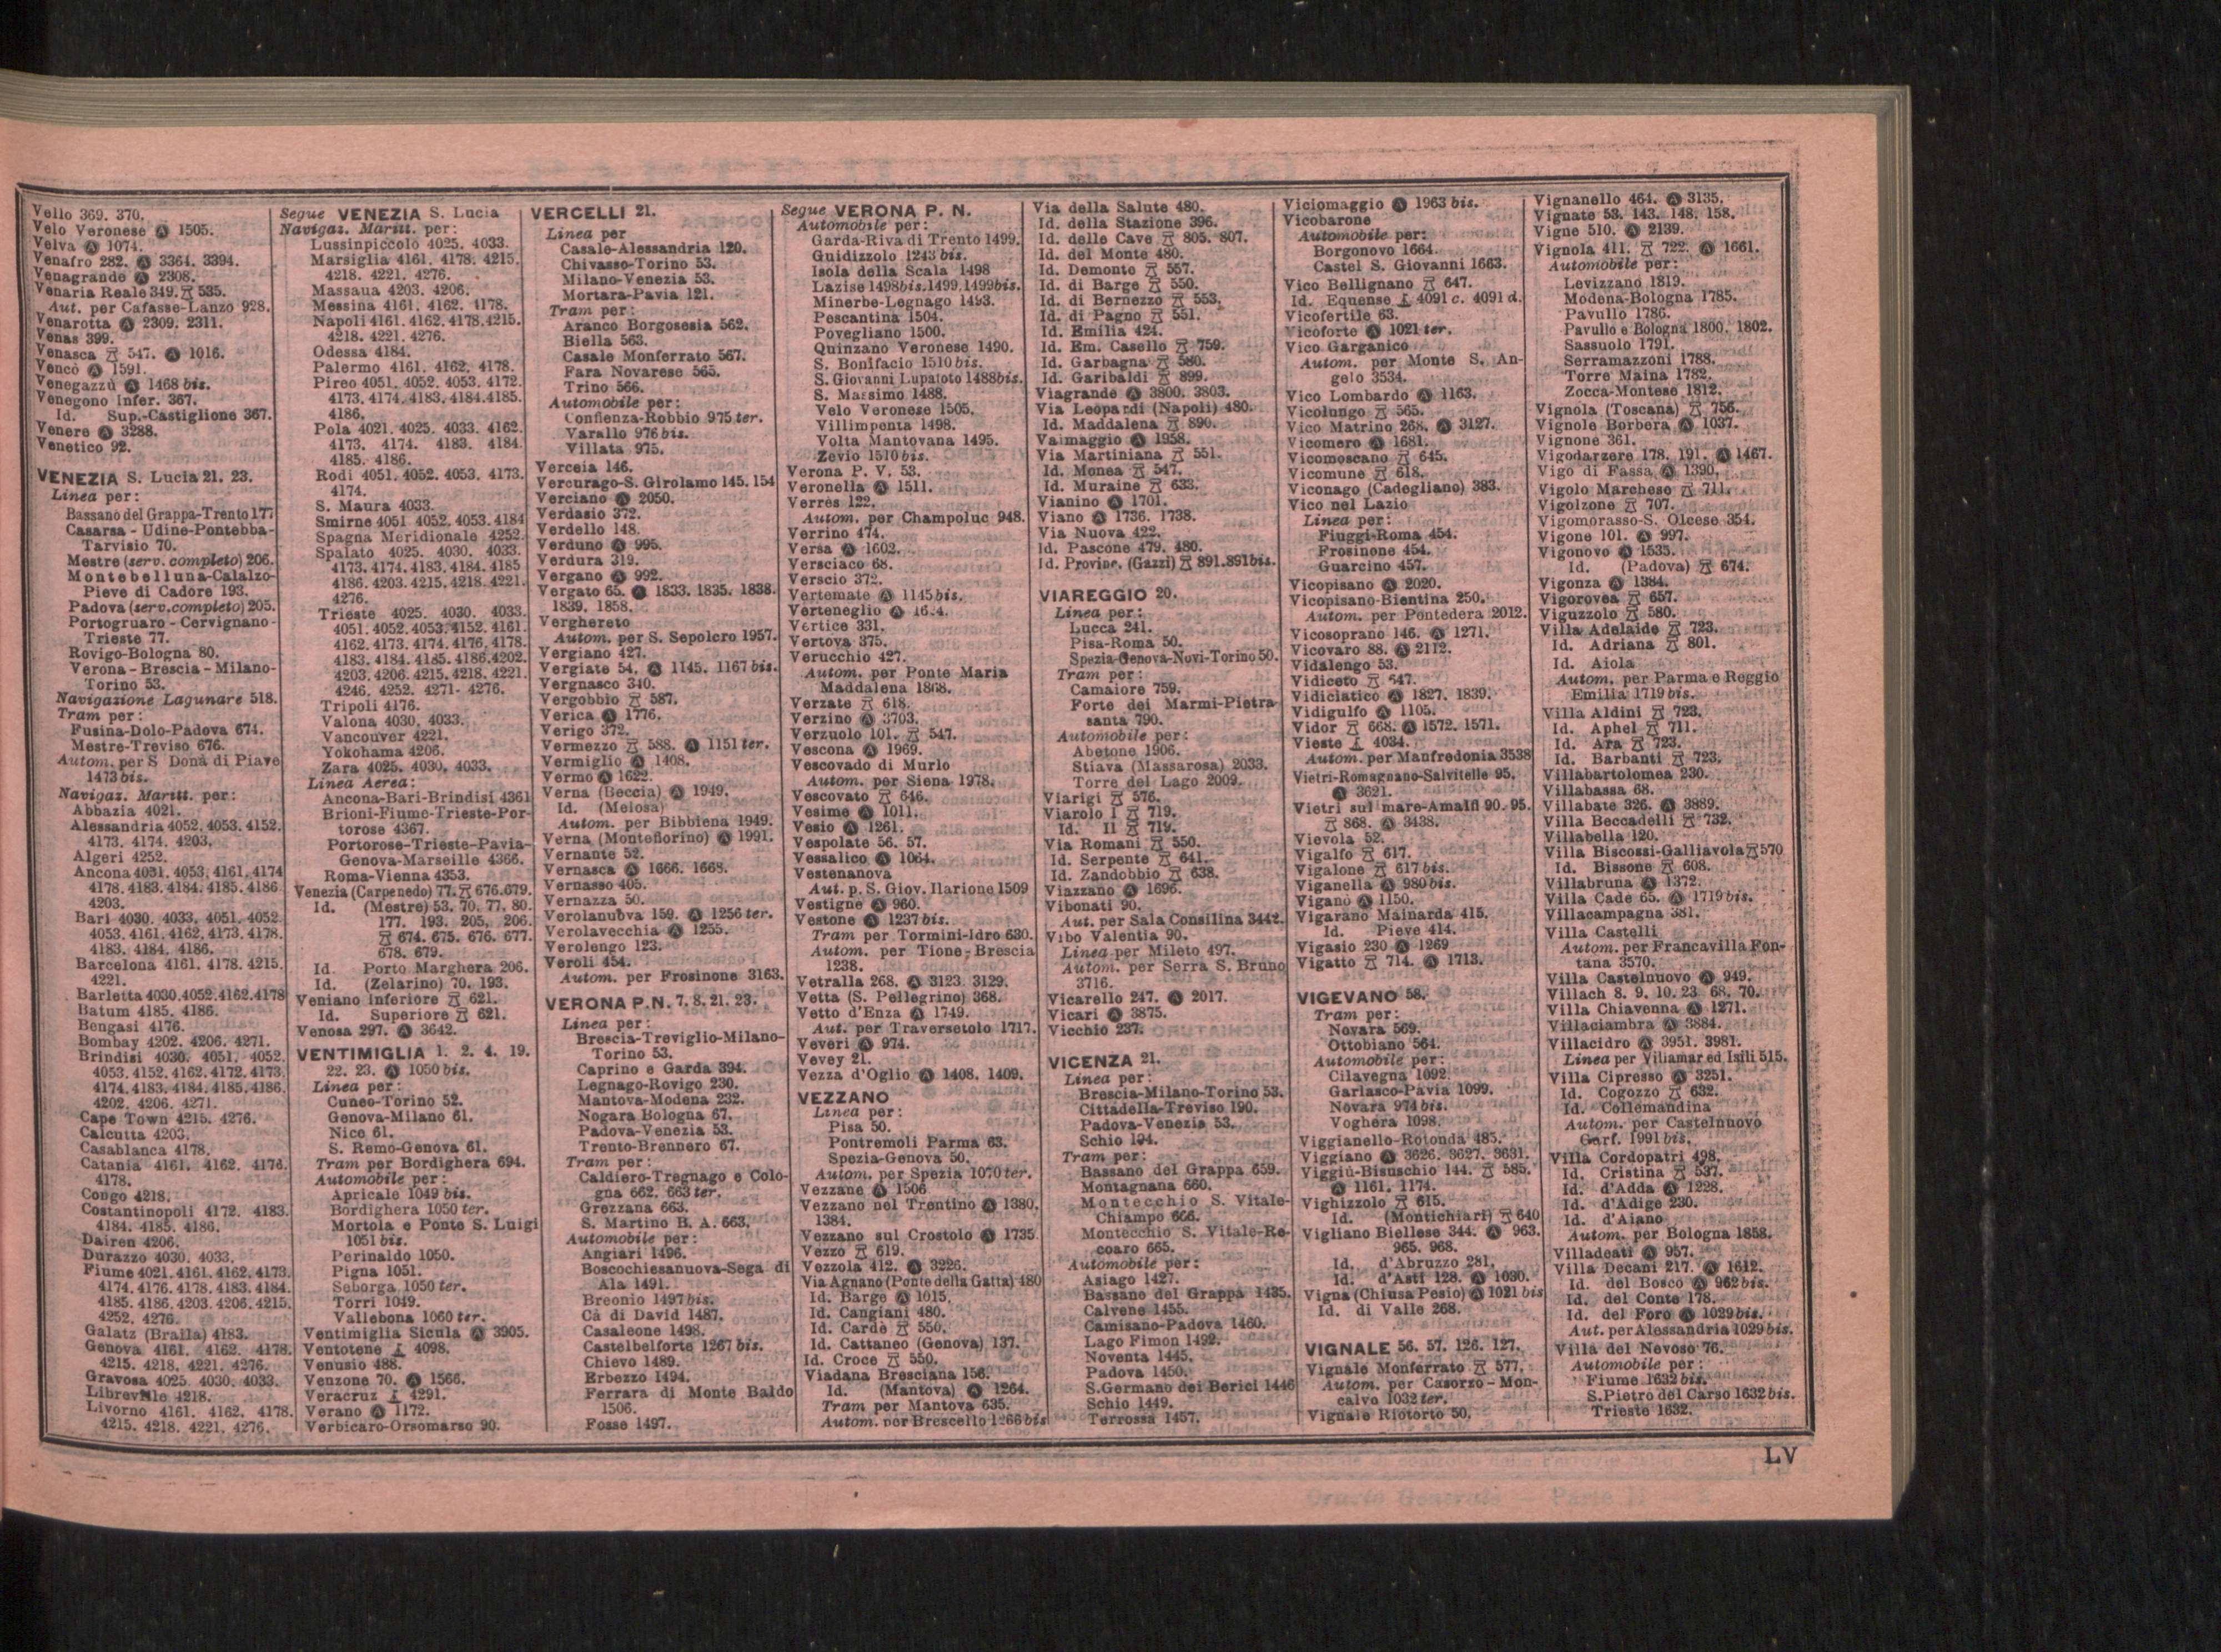 Vello 369. 370.
Velo Veronese Ⓐ 1505.
Velva Ⓐ 1074.
Venafro 282. Ⓐ 3364. 3394.
Venagrande Ⓐ 2308.
Venaria Reale 349. 535.
Aut. per Cafasse-Lanzo 928.
Venarotta Ⓐ 2309. 2311.
Venas 399.
Venasca 547. Ⓐ 1016.
Vencò Ⓐ 1591.
Venegazzù Ⓐ 1468 bis.
Venegono Infer. 367.
Id. Sup.-Castiglione 367.
Venere Ⓐ 3288.
Venetico 92.
VENEZIA S. Lucia 21. 23.
Linea per:
Bassano del Grappa-Trento 177
Casarsa - Udine-Pontebba-
Tarvisio 70.
Mestre (serv. completo) 206.
Montebelluna-Calalzo-
Pieve di Cadore 193.
Padova (serv. completo) 205.
Portogruaro - Cervignano-
Trieste 77.
Rovigo-Bologna 80.
Verona - Brescia - Milano-
Torino 53.
Navigazione Lagunare 518.
Tram per:
Fusina-Dolo-Padova 674.
Mestre-Treviso 676.
Autom. per S Donà di Piave
1473 bis.
Navigaz. Maritt. per:
Abbazia 4021.
Alessandria 4052. 4053. 4152.
4173. 4174. 4203.
Algeri 4252.
Ancona 4031. 4053. 4161. 4174
4178. 4183. 4184. 4185. 4186
4203.
Bari 4030. 4033. 4051. 4052
4053. 4161. 4162. 4173. 4178.
4183. 4184. 4186.
Barcelona 4161. 4178. 4215.
4221.
Barletta 4030. 4052. 4162. 4178
Batum 4185. 4186.
Bengasi 4176.
Bombay 4202. 4206. 4271.
Brindisi 4030. 4051. 4052.
4053. 4152. 4162. 4172. 4173.
4174. 4183. 4184. 4185. 4186.
4202. 4206. 4271.
Cape Town 4215. 4276.
Calcutta 4203.
Casablanca 4178.
Catania 4161. 4162. 4176.
4178.
Congo 4218.
Costantinopoli 4172. 4183.
4184. 4185. 4186.
Dairen 4206.
Durazzo 4030. 4033.
Fiume 4021. 4161. 4162. 4173.
4174. 4176. 4178. 4183. 4184.
4185. 4186. 4203. 4206. 4215.
4252. 4276.
Galatz (Braila) 4183.
Genova 4161. 4162. 4178.
4215. 4218. 4221. 4276.
Gravosa 4025. 4030. 4033.
Libreville 4218.
Livorno 4161. 4162. 4178.
4215. 4218. 4221. 4276.
Segue VENEZIA S. Lucia
Navigaz. Maritt. per:
Lussinpiccolo 4025. 4033.
Marsiglia 4161. 4178. 4215.
4218. 4221. 4276.
Massaua 4203. 4206.
Messina 4161. 4162. 4178.
Napoli 4161. 4162. 4178. 4215.
4218. 4221. 4276.
Odessa 4184.
Palermo 4161. 4162. 4178.
Pireo 4051. 4052. 4053. 4172.
4173. 4174. 4183. 4184. 4185.
4186.
Pola 4021. 4025. 4033. 4162.
4173. 4174. 4183. 4184.
4185. 4186.
Rodi 4051. 4052. 4053. 4173.
4174.
S. Maura 4033.
Smirne 4051 4052. 4053. 4184
Spagna Meridionale 4252.
Spalato 4025. 4030. 4033.
4173. 4174. 4183. 4184. 4185
4186. 4203. 4215. 4218. 4221.
4276.
Trieste 4025. 4030. 4033.
4051. 4052. 4053. 4152. 4161.
4162. 4173. 4174. 4176. 4178.
4183. 4184. 4185. 4186. 4202.
4203. 4206. 4215. 4218. 4221.
4246. 4252. 4271- 4276.
Tripoli 4176.
Valona 4030. 4033.
Vancouver 4221.
Yokohama 4206.
Zara 4025. 4030. 4033.
Linea Aerea:
Ancona-Bari-Brindisi 4361
Brioni-Fiume-Trieste-Por-
torose 4367.
Portorose-Trieste-Pavia-
Genova-Marseille 4366.
Roma-Vienna 4353.
Venezia (Carpenedo) 77. 676. 679.
Id. (Mestre) 53. 70. 77. 80.
177. 193. 205. 206.
674. 675. 676. 677.
678. 679.
Id. Porto Marghera 206.
Id. (Zelarino) 70. 193.
Veniano inferiore 621.
Id. Superiore 621.
Venosa 297. Ⓐ 3642.
VENTIMIGLIA 1. 2. 4. 19.
22. 23. Ⓐ 1050 bis.
Linea per:
Cuneo-Torino 52.
Genova-Milano 61.
Nice 61.
S. Remo-Genova 61.
Tram per Bordighera 694.
Automobile per:
Apricale 1049 bis.
Bordighera 1050 ter.
Mortola e Ponte S. Luigi
1051 bis.
Perinaldo 1050.
Pigna 1051.
Seborga 1050 ter.
Torri 1049.
Vallebona 1060 ter.
Ventimiglia Sicula Ⓐ 3905.
Ventotene 4098.
Venusio 488.
Venzone 70. Ⓐ 1566.
Veracruz 4291.
Verano Ⓐ 1172.
Verbicaro-Orsomarso 90.
VERCELLI 21.
Linea per
Casale-Alessandria 120.
Chivasso-Torino 53.
Milano-Venezia 53.
Mortara-Pavia 121.
Tram per:
Aranco Borgosesia 562.
Biella 563.
Casale Monferrato 567.
Fara Novarese 565.
Trino 566.
Automobile per:
Confienza-Robbio 975 ter.
Varallo 976 bis.
Villata 975.
Verceia 146.
Vercurago-S. Girolamo 145. 154
Verciano Ⓐ 2050.
Verdasio 372.
Verdello 148.
Verduno Ⓐ 995.
Verdura 319.
Vergano Ⓐ 992.
Vergato 65. Ⓐ 1833. 1835. 1838.
1839. 1858.
Verghereto
Autom. per S. Sepolcro 1957.
Vergiano 427.
Vergiate 54. Ⓐ 1145. 1167 bis.
Vergnasco 340.
Vergobbio 587.
Verica Ⓐ 1776.
Verigo 372.
Vermezzo 588. Ⓐ 1151 ter.
Vermiglio Ⓐ 1408.
Vermo Ⓐ 1622.
Verna (Beccia) Ⓐ 1949.
Id. (Melosa)
Autom. per Bibbiena 1949.
Verna (Montefiorino) Ⓐ 1991.
Vernante 52.
Vernasca Ⓐ 1666. 1668.
Vernasso 405.
Vernazza 50.
Verolanuova 159. Ⓐ 1256 ter.
Verolavecchia Ⓐ 1255.
Verolengo 123.
Veroli 454.
Autom. per Frosinone 3163.
VERONA P. N. 7. 8. 21. 23.
Linea per:
Brescia-Treviglio-Milano-
Torino 53.
Caprino e Garda 394.
Legnago-Rovigo 230.
Mantova-Modena 232.
Nogara Bologna 67.
Padova-Venezia 53.
Trento-Brennero 67.
Tram per:
Caldiero-Tregnago e Colo-
gna 662. 663 ter.
Grezzana 663.
S. Martino B. A. 663.
Automobile per:
Angiari 1496.
Boscochiesanuova-Sega di
Ala 1491.
Breonio 1497 bis.
Cà di David 1487.
Casaleone 1498.
Castelbelforte 1267 bis.
Chievo 1489.
Erbezzo 1494.
Ferrara di Monte Baldo
1506.
Fosse 1497.
Segue VERONA P. N.
Automobile per:
Garda-Riva di Trento 1499.
Guidizzolo 1243 bis.
Isola della Scala 1498
Lazise 1498 bis. 1499. 1499 bis.
Minerbe-Legnago 1493.
Pescantina 1504.
Povegliano 1500.
Quinzano Veronese 1490.
S. Bonifacio 1510 bis.
S. Giovanni Lupatoto 1488 bis.
S. Massimo 1488.
Velo Veronese 1505.
Villimpenta 1498.
Volta Mantovana 1495.
Zevio 1510 bis.
Verona P. V. 53.
Veronella Ⓐ 1511.
Verrès 122.
Autom. per Champoluc 948.
Verrino 474.
Versa Ⓐ 1602.
Versciaco 68.
Verscio 372.
Vertemate Ⓐ 1145 bis.
Verteneglio Ⓐ
Vertice 331.
Vertova 375.
Verucchio 427.
Autom. per Ponte Maria
Maddalena 1868.
Verzate 618.
Verzino Ⓐ 3703.
Verzuolo 101. 547.
Vescona Ⓐ 1969.
Vescovado di Murlo
Autom. per Siena 1978.
Vescovato 646.
Vesime Ⓐ 1011.
Vesio Ⓐ 1261.
Vespolate 56. 57.
Vessalico Ⓐ 1064.
Vestenanova
Aut. p. S. Giov. Ilarione 1509
Vestignè Ⓐ 960.
Vestone Ⓐ 1237 bis.
Tram per Tormini-Idro 630.
Autom. per Tione-Brescia
1238.
Vetralla 268. Ⓐ 3123 3129.
Vetta (S. Pellegrino) 368.
Vetto d'Enza Ⓐ 1749.
Aut. per Traversetolo 1717.
Veveri Ⓐ 974.
Vevey 21.
Vezza d'Oglio Ⓐ 1408. 1409.
VEZZANO
Linea per:
Pisa 50.
Pontremoli Parma 63.
Spezia-Genova 50.
Autom. per Spezia 1070 ter.
Vezzane Ⓐ 1506
Vezzano nel Trentino Ⓐ 1380.
1384.
Vezzano sul Crostolo Ⓐ 1735
Vezzo 619.
Vezzola 412. Ⓐ 3226.
Via Agnano (Ponte della Gatta) 480
Id. Barge Ⓐ 1015.
Id. Cangiani 480.
Id. Cardè 550.
Id. Cattaneo (Genova) 137.
Id. Croce 550.
Viadana Bresciana 156.
Id. (Mantova) Ⓐ 1264.
Tram per Mantova 635.
Autom. per Brescello 1266 bis
Via della Salute 480.
Id. della Stazione 396.
Id. delle Cave 805. 807.
Id. del Monte 480.
Id. Demonte 557.
Id. di Barge 550.
Id. di Bernezzo 553.
Id. di Pagno 551.
Id. Emilia 424.
Id. Em. Casello 759.
Id. Garbagna 580.
Id. Garibaldi 899.
Viagrande Ⓐ 3800. 3803.
Via Leopardi (Napoli) 480.
Id. Maddalena 890.
Vaimaggio Ⓐ 1958.
Via Martiniana 551.
Id. Monea 547.
Id. Muraine 633.
Vianino Ⓐ 1701.
Viano Ⓐ 1736. 1738.
Via Nuova 422.
Id. Pascone 479. 480.
Id. Provinc. (Gazzi) 891. 891 bis.
VIAREGGIO 20.
Linea per:
Lucca 241.
Pisa-Roma 50.
Spezia-Genova-Novi-Torino 50.
Tram per:
Camaiore 759.
Forte dei Marmi-Pietra
santa 790.
Automobile per:
Abetone 1906.
Stiava (Massarosa) 2033.
Torre del Lago 2009.
Viarigi 576.
Viarolo I 719.
Id. II 719.
Via Romani 550.
Id. Serpente 641.
Id. Zandobbio 638.
Viazzano Ⓐ 1696.
Vibonati 90.
Aut. per Sala Consilina 3442.
Vibo Valentia 90.
Linea per Mileto 497.
Autom. per Serra S. Bruno
3716.
Vicarello 247. Ⓐ 2017.
Vicari Ⓐ 3875.
Vicchio 237.
VICENZA 21.
Linea per:
Brescia-Milano-Torino 53.
Cittadella-Treviso 190.
Padova-Venezia 53.
Schio 194.
Tram per:
Bassano del Grappa 659.
Montagnana 660.
Montecchio S. Vitale-
Chiampo 666.
Montecchio S. Vitale-Re-
coaro 665.
Automobile per:
Asiago 1427.
Bassano del Grappa 1435.
Calvene 1455.
Camisano-Padova 1460.
Lago Fimon 1492.
Noventa 1445.
Padova 1450.
S. Germano dei Berici 1446
Schio 1449.
Terrossa 1457.
Viciomaggio Ⓐ 1963 bis.
Vicobarone
Automobile per:
Borgonovo 1664.
Castel S. Giovanni 1663.
Vico Bellignano 647.
Id. Equense 4091 c. 4091 d.
Vicofertile 63.
Vicoforte Ⓐ 1021 ter.
Vico Garganico
Autom. per Monte S. An-
gelo 3534.
Vico Lombardo Ⓐ 1163.
Vicolungo 565.
Vico Matrino 268. Ⓐ 3127.
Vicomero Ⓐ 1681.
Vicomoscano 645.
Vicomune 618.
Viconago (Cadegliano) 383.
Vico nel Lazio
Linea per:
Fiuggi-Roma 454.
Frosinone 454.
Guarcino 457.
Vicopisano Ⓐ 2020.
Vicopisano-Bientina 250.
Autom. per Pontedera 2012.
Vicosoprano 146. Ⓐ 1271.
Vicovaro 88. Ⓐ 2112.
Vidalengo 53.
Vidiceto 647.
Vidiciatico Ⓐ 1827. 1839.
Vidigulfo Ⓐ 1105.
Vidor 668. Ⓐ 1572. 1571.
Vieste 4034.
Autom. per Manfredonia 3538
Vietri-Romagnano-Salvitelle 95.
Ⓐ 3621.
Vietri sul mare-Amalfi 90. 95.
868. Ⓐ 3438.
Vievola 52.
Vigalfo 617.
Vigalone 617 bis.
Viganella Ⓐ 980 bis.
Viganò Ⓐ 1150.
Vigarano Mainarda 415.
Id. Pieve 414.
Vigasio 230 Ⓐ 1269
Vigatto 714. Ⓐ 1713.
VIGEVANO 58.
Tram per:
Novara 569.
Ottobiano 564.
Automobile per:
Cilavegna 1092.
Garlasco-Pavia 1099.
Novara 974 bis.
Voghera 1098.
Viggianello-Rotonda 485.
Viggiano Ⓐ 3626. 3627. 3631.
Viggiù-Bisuschio 144. 585.
Ⓐ 1161. 1174.
Vighizzolo 615.
Id. (Montichiari) 640
Vigliano Biellese 344. Ⓐ 963.
965. 968.
Id. d'Abruzzo 281.
Id. d'Asti 128. Ⓐ 1030.
Vigna (Chiusa Pesio) Ⓐ 1021 bis
Id. di Valle 268.
VIGNALE 56. 57. 126. 127.
Vignale Monferrato 577.
Autom. per Casorzo-Mon-
calvo 1032 ter.
Vignale Riotorto 50.
Vignanello 464. Ⓐ 3135.
Vignate 53. 143. 148. 158.
Vigne 510. Ⓐ 2139.
Vignola 411. 722. Ⓐ 1661.
Automobile per:
Levizzano 1819.
Modena-Bologna 1785.
Pavullo 1786.
Pavullo e Bologna 1800. 1802.
Sassuolo 1791.
Serramazzoni 1788.
Torre Maina 1782.
Zocca-Montese 1812.
Vignola (Toscana) 756.
Vignole Borbera Ⓐ 1037.
Vignone 361.
Vigodarzere 178. 191. Ⓐ 1467.
Vigo di Fassa Ⓐ 1390.
Vigolo Marchese 711.
Vigolzone 707.
Vigomorasso-S. Olcese 354.
Vigone 101. Ⓐ 997.
Vigonovo Ⓐ 1535.
Id. (Padova) 674.
Vigonza Ⓐ 1384.
Vigorovea 657.
Viguzzolo 580.
Villa Adelaide 723.
Id. Adriana 801.
Id. Aiola
Autom. per Parma e Reggio
Emilia 1719 bis.
Villa Aldini 723.
Id. Aphel 711.
Id. Ara 723.
Id. Barbanti 723.
Villabartolomea 230.
Villabassa 68.
Villabate 326. Ⓐ 3889.
Villa Beccadelli 732.
Villabella 120.
Villa Biscossi-Galliavola 570
Id. Bissone 608.
Villabruna Ⓐ 1372.
Villa Cade 65. Ⓐ 1719 bis.
Villacampagna 381.
Villa Castelli
Autom. per Francavilla Fon-
tana 3570.
Villa Castelnuovo Ⓐ 949.
Villach 8. 9. 10. 23 68. 70.
Villa Chiavenna Ⓐ 1271.
Villaciambra Ⓐ 3884.
Villacidro Ⓐ 3951. 3981.
Linea per Villamar ed Isili 515.
Villa Cipresso Ⓐ 3251.
Id. Cogozzo 632.
Id. Collemandina
Autom. per Castelnuovo
Garf. 1991 bis.
Villa Cordopatri 498.
Id. Cristina 537.
Id. d'Adda Ⓐ 1228.
Id. d'Adige 230.
Id. d'Aiano
Autom. per Bologna 1858.
Villadeati Ⓐ 957.
Villa Decani 217. Ⓐ 1612.
Id. del Bosco Ⓐ 962 bis.
Id. del Conte 178.
Id. del Foro Ⓐ 1029 bis.
Aut. per Alessandria 1029 bis.
Villa del Nevoso 76.
Automobile per:
Fiume 1632 bis.
S. Pietro del Carso 1632 bis.
Trieste 1632.
LV